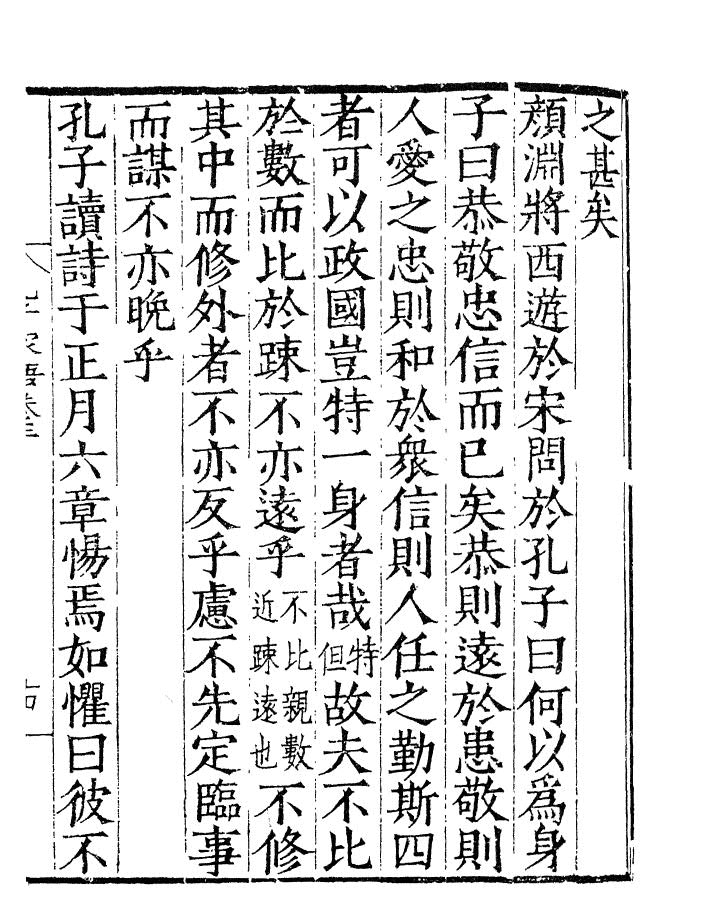 之甚矣
顏淵將西遊於宋問於孔子曰何以爲身
子曰恭敬忠信而已矣恭則遠於患敬則
人愛之忠則和於衆信則人任之勤斯四
者可以政國豈特一身者哉特但故夫不比
於數而比於踈不亦遠乎不比親數近踈遠也不修
其中而修外者不亦反乎慮不先定臨事
而謀不亦晚乎
孔子讀詩于正月六章惕焉如懼曰彼不